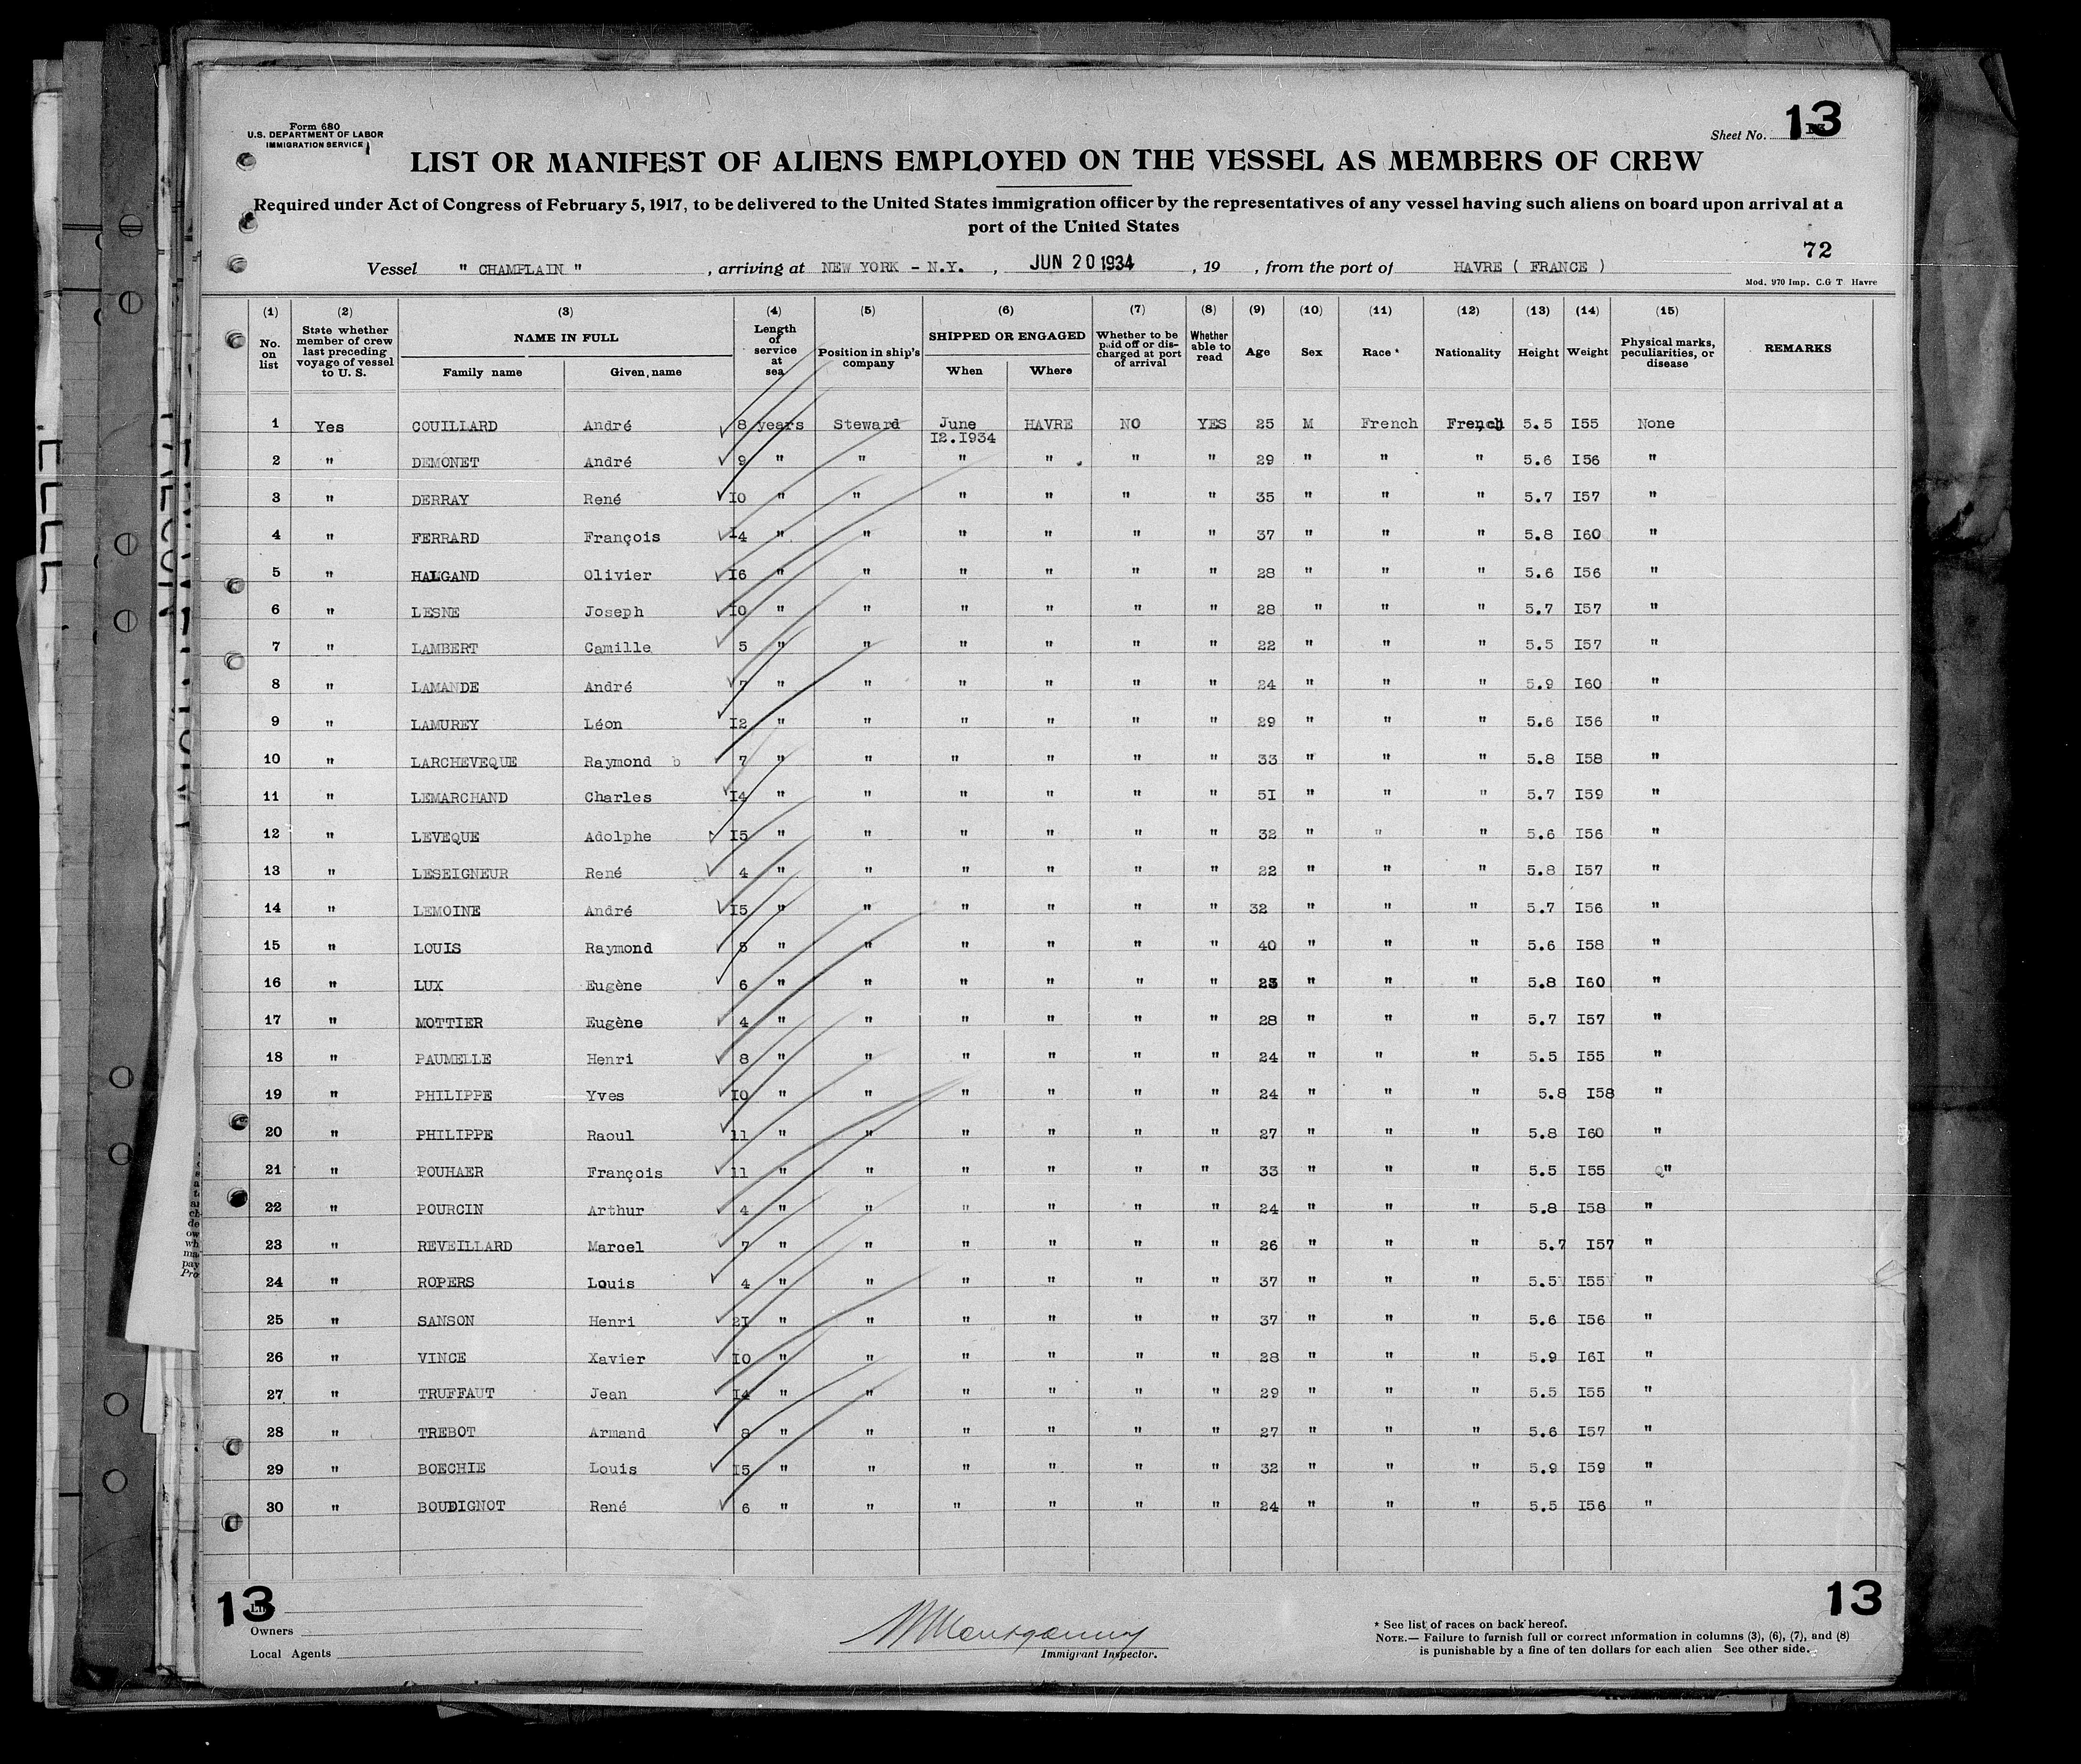 Form 680
U.S. DEPARTMENT OF LABOR
IMMIGRATION SERVICE
Sheet No. 13
LIST OR MANIFEST OF ALIENS EMPLOYED ON THE VESSEL AS MEMBERS OF CREW
Required under Act of Congress of February 5, 1917, to be delivered to the United States immigration officer by the representatives of any vessel having such aliens on board upon arrival at a
port of the United States
72
Vessel " CHAMPLAIN " , arriving at NEW YORK - N.Y. , JUN 20 1934 , 19 , from the port of HAVRE ( FRANCE )
Mod. 970 Imp. C.G T Havre
(1) (2) (3) (4) (5) (6) (7) (8) (9) (10) (11) (12) (13) (14) (15)
No. on list State whether member of crew last preceding voyage of vessel to U. S. NAME IN FULL Family name Given name Length of service at sea Position in ship's company SHIPPED OR ENGAGED When Where Whether to be paid off or discharged at port of arrival Whether able to read Age Sex Race * Nationality Height Weight Physical marks, peculiarities, or disease REMARKS
1 Yes COUILLARD André 8 years Steward June 12.1934 HAVRE NO YES 25 M French French 5.5 I55 None
2 " DEMONET André 9 " " " " " " 29 " " " 5.6 I56 "
3 " DERRAY René I0 " " " " " " 35 " " " 5.7 I57 "
4 " FERRARD François I4 " " " " " " 37 " " " 5.8 I60 "
5 " HALGAND Olivier I6 " " " " " " 28 " " " 5.6 I56 "
6 " LESNE Joseph I0 " " " " " " 28 " " " 5.7 I57 "
7 " LAMBERT Camille 5 " " " " " " 22 " " " 5.5 I57 "
8 " LAMANDE André 7 " " " " " " 24 " " " 5.9 I60 "
9 " LAMUREY Léon I2 " " " " " " 29 " " " 5.6 I56 "
10 " LARCHEVEQUE Raymond b 7 " " " " " " 33 " " " 5.8 I58 "
11 " LEMARCHAND Charles I4 " " " " " " 5I " " " 5.7 I59 "
12 " LEVEQUE Adolphe I5 " " " " " " 32 " " " 5.6 I56 "
13 " LESEIGNEUR René 4 " " " " " " 22 " " " 5.8 I57 "
14 " LEMOINE André I5 " " " " " " 32 " " " 5.7 I56 "
15 " LOUIS Raymond " " " " " " 40 " " " 5.6 I58 "
16 " LUX Eugène 6 " " " " " " " " " 5.8 I60 "
17 " MOTTIER Eugène 4 " " " " " " 28 " " " 5.7 I57 "
18 " PAUMELLE Henri 8 " " " " " " 24 " " " 5.5 I55 "
19 " PHILIPPE Yves I0 " " " " " " 24 " " " 5.8 I58 "
20 " PHILIPPE Raoul 11 " " " " " " 27 " " " 5.8 I60 "
21 " POUHAER François 11 " " " " " " 33 " " " 5.5 I55 "
22 " POURCIN Arthur 4 " " " " " " 24 " " " 5.8 I58 "
23 " REVEILLARD Marcel 7 " " " " " " 26 " " " 5.7 I57 "
24 " ROPERS Louis 4 " " " " " " 37 " " " 5.5 I55 "
25 " SANSON Henri 2I " " " " " " 37 " " " 5.6 I56 "
26 " VINCE Xavier I0 " " " " " " 28 " " " 5.9 I6I "
27 " TRUFFAUT Jean I4 " " " " " " 29 " " " 5.5 I55 "
28 " TREBOT Armand 8 " " " " " " 27 " " " 5.6 I57 "
29 " BOECHIE Louis I5 " " " " " " 32 " " " 5.9 I59 "
30 " BOUDIGNOT René 6 " " " " " " 24 " " " 5.5 I56 "
13
13
Owners
Local Agents
Montgomery
Immigrant Inspector.
* See list of races on back hereof.
NOTE.— Failure to furnish full or correct information in columns (3), (6), (7), and (8)
is punishable by a fine of ten dollars for each alien See other side.